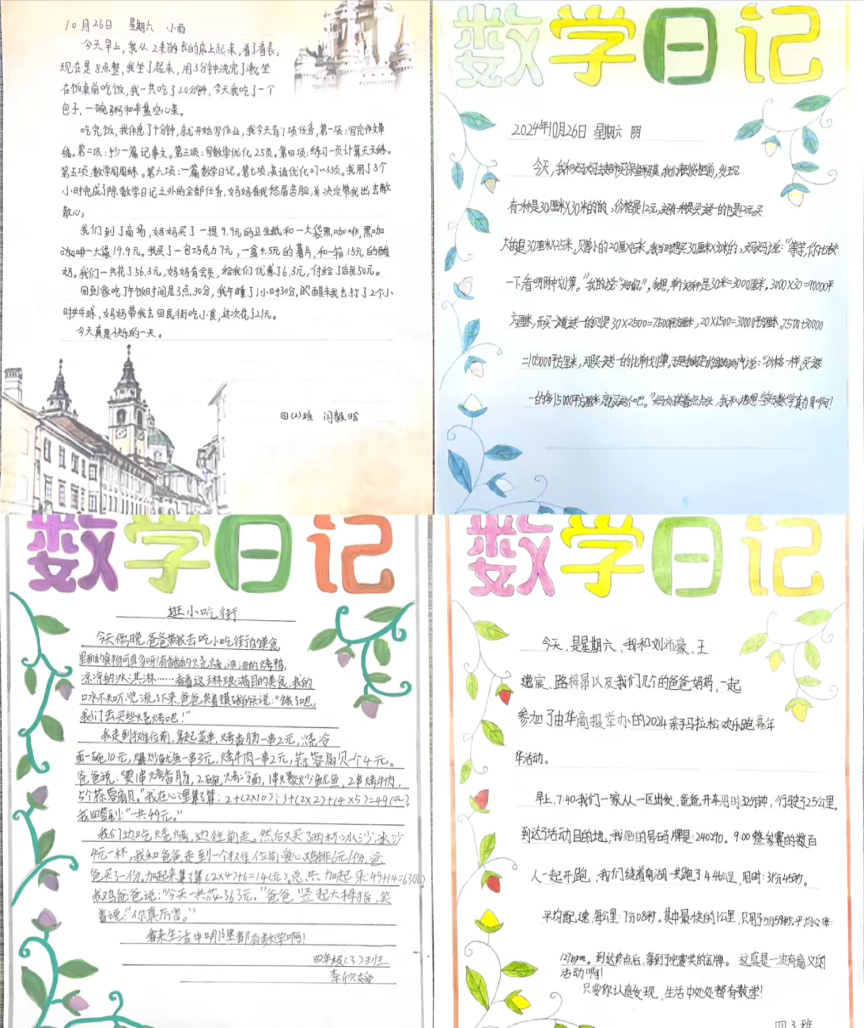 10月26日 星期六 小雨
今天早上,我从2米的长的床上起来,看了看表,
现在是8点整,我坐了起来,用3分钟洗完了漱坐
在饭桌前吃饭,我一共吃了20分钟,今天我吃了一个
包子,一碗粥和半盘空心菜。
吃完饭,我休息了十分钟,就开始写作业,我今天有7项任务,第一项:写完作文草
稿。第二项:抄一篇记事文。第三项:写数学优化25页。第四项:练习一页计算天天练。
第五项:数学周周练。第六项:一篇数学日记。第七项:英语优化27~33页。我用了3个
小时完成了除数学日记之外的全部任务,妈妈看我愁眉苦脸,决定带我出去散
散心。
我们到了商场,妈妈买了一提9.9元的卫生纸和一大袋黑咖啡,黑咖
啡一大袋19.9元。我买了一包巧克力7元,一盒4.5元的薯片,和一箱15元的酸
奶。我们一共花了56.3元,妈妈有会员,给我们优惠了6.3元,付给了店员50元。
回到家吃了午饭时间是3点30分,我午睡了1小时30分,我去打了2个小
时乒乓球,妈妈带我去回民街吃小食,这次花了21元。
今天真是快乐的一天。
四(2)班 闫
数学日记
2024年10月26日 星期六 阴
今天,我和妈妈去超市买保鲜膜,我们,发现
有一种是30厘米×30米的,价格是12元,还有一种买一送一的也是12元,买
大的是30厘米×25米,送小的20厘米×15米。我想买30厘米×30米的,妈妈说:“等等,你比较
一下,看哪种划算。”我的,这种是30米=3000厘米,3000×30=90000平
方厘米,而买一送一的是30×2500=75000平方厘米,20×1500=30000平方厘米,75000+30000
=105000平方厘米,买一送一的比单个划算。于是我对妈妈说:“价格一样,买一送
一的多15000平方厘米,就买这个吧。”妈妈笑着点点头,我想学好数学真有用啊!
数学日记
逛小吃街
今天傍晚,爸爸带我去吃小吃街的美食,
里面的食物可真多呀!有香喷喷的火烧、油油的烤鸭、
凉凉的冰淇淋……看着这琳琅满目的美食,我的
口水不知不觉流了下来,爸爸笑着摸摸我的头说:“饿了吧,
我们去买些烧烤吧!”
我走到摊位前,拿起菜单,烤香肠一串2元,烤冷
面一碗10元,爆炒鱿鱼一串3元,烤牛肉一串2元,蒜蓉扇贝一个4元。
爸爸说:“要1串烤香肠,2碗烤冷面,1串爆炒鱿鱼,2串烤牛肉,
5个蒜蓉扇贝。”我在心里算了算:2+(2×10)+3+(2×2)+(4×5)=49(元)
我回答到:“一共49元。”
我们边吃烧烤,边往前走。然后又买了两杯冰沙,冰沙
4元一杯,我和爸爸走到一个摊位前,爱心鸡排6元1份,爸
爸买了一份,加起来算了算(2×4)+6=14(元),总共加起来:49+14=63(元)
我对爸爸说:“今天一共花了63元。”爸爸竖起大拇指,笑
着说:“你真厉害。”
看来生活中哪里都有数学啊!
四年级(3)班
李欣
数学日记
今天,是星期六,我和刘沛豪、王
宸、路以及我们几个的爸爸妈妈,一起
参加了由华商报举办的2024亲子马拉松欢乐跑嘉年
华活动。
早上7:40我们一家从一区出发,爸爸开车用时32分钟,行驶了25公里,
到达了活动目的地,我跑的号码牌是:240290。9:00整参赛的数百
人一起开跑,我们绕着南湖一共跑了4.46公里,用时:31分45秒。
平均配速,每公里:7分08秒。其中最快的1公里,只用了5分59秒,平均心率:
127bpm。到达终点后,拿到了完赛奖的金牌。这真是一次有意义的
活动啊!
只要你认真发现,生活中处处都有数学!
四3班